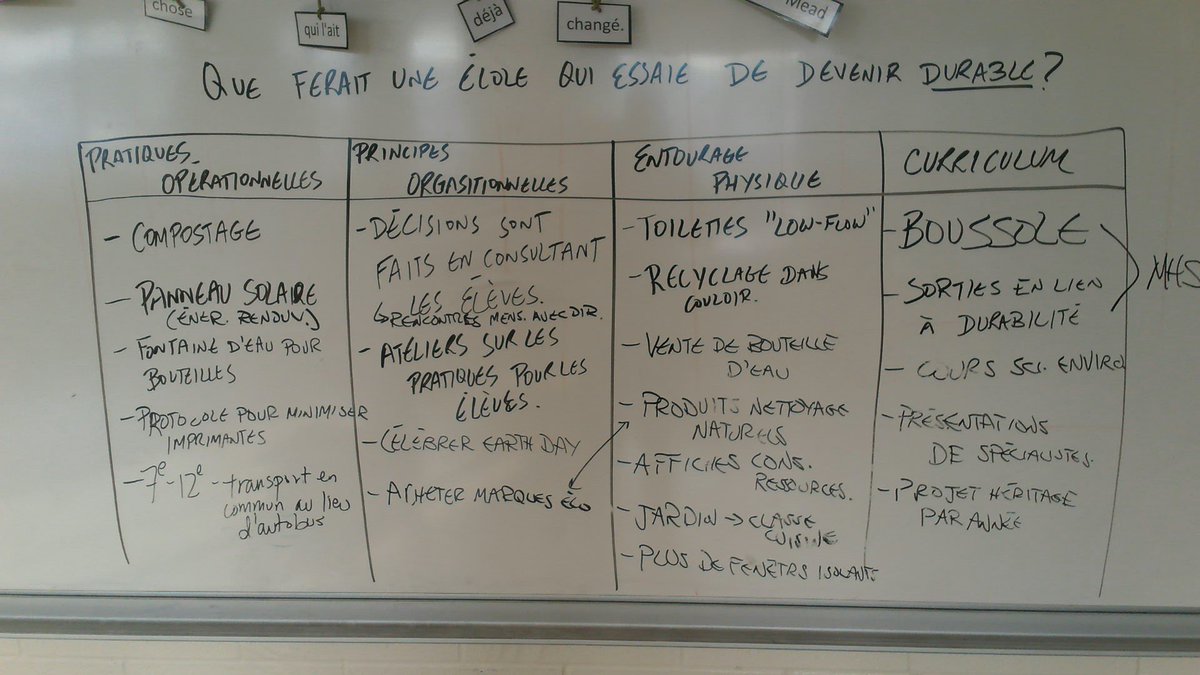 chose
qui l'ait
déjà
changé.
Mead
QUE FERAIT UNE ÉCOLE QUI ESSAIE DE DEVENIR DURABLE?
PRATIQUES
OPÉRATIONNELLES
- COMPOSTAGE
- PANNEAU SOLAIRE
(ÉNER. RENOUV.)
- FONTAINE D'EAU POUR
BOUTEILLES
- PROTOCOLE POUR MINIMISER
IMPRIMANTES
- 7e-12e - transport en
commun au lieu
d'autobus
PRINCIPES
ORGASITIONNELLES
- DÉCISIONS SONT
FAITS EN CONSULTANT
LES ÉLÈVES.
↳ RENCONTRES MENS. AVEC DIR.
- ATELIERS SUR LES
PRATIQUES POUR LES
ÉLÈVES.
- CÉLÉBRER EARTH DAY
- ACHETER MARQUES ÉCO
ENTOURAGE
PHYSIQUE
- TOILETTES "LOW-FLOW"
- RECYCLAGE DANS
COULOIR.
- VENTE DE BOUTEILLE
D'EAU
- PRODUITS NETTOYAGE
NATURELS
- AFFICHES CONS.
RESSOURCES.
- JARDIN → CLASSE
CUISINE
- PLUS DE FENÊTRS ISOLANTS
CURRICULUM
- BOUSSOLE
- SORTIES EN LIEN
À DURABILITÉ
MHS
- COURS SCI. ENVIRO
- PRÉSENTATIONS
DE SPÉCIALISTES.
- PROJET HÉRITAGE
PAR ANNÉE